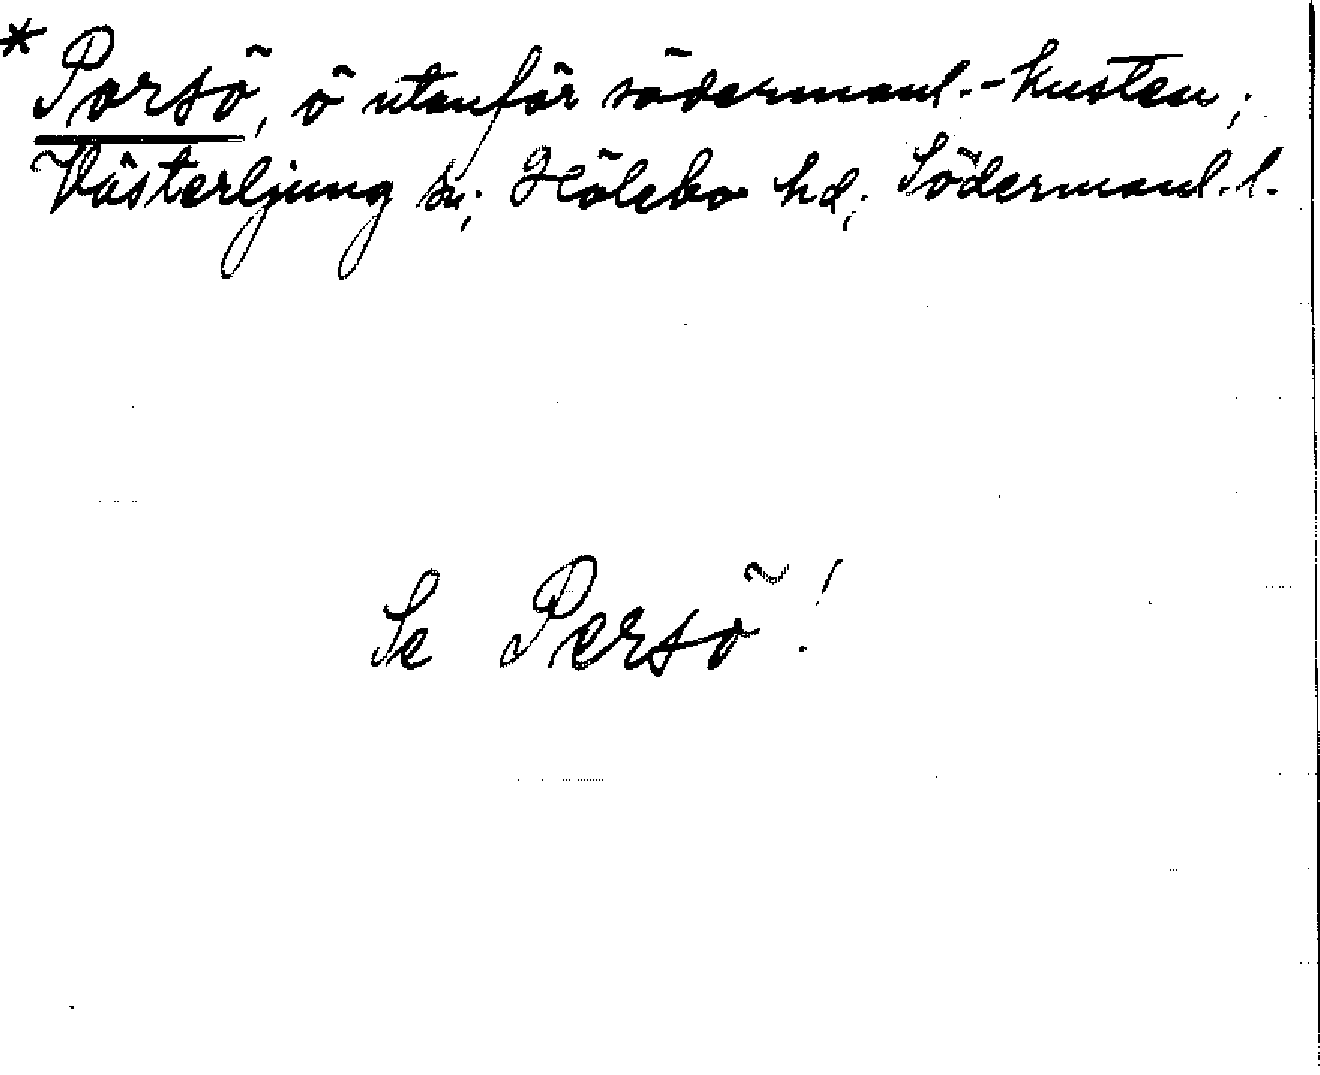 * Porsö, ö utanför södermanl.-kusten;
Västerljung sn; Hölebo hd; Södermanl. l.
Se Persö!